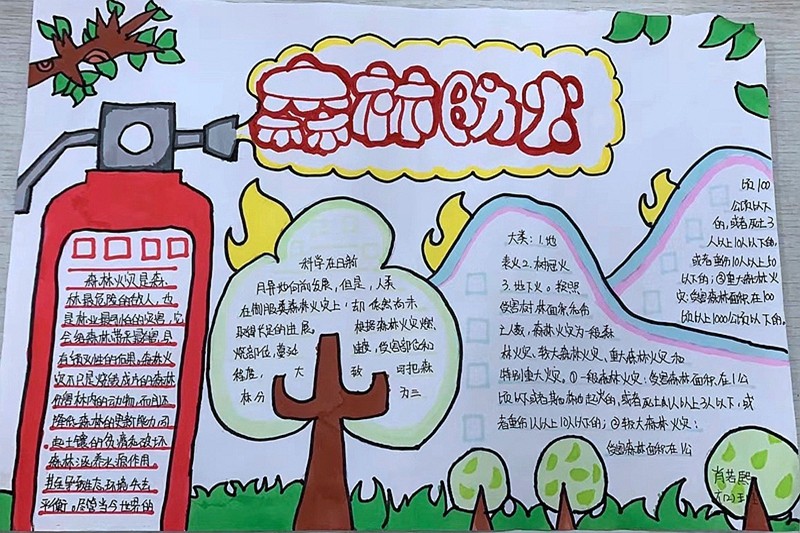 森林防火
森林火灾是森
林最危险的敌人,也
是林业最可怕的灾害,它
会给森林带来最害,具
有毁灭性的作用。森林火
灾不只是烧毁成片的森林
伤害林内的动物,而且还
降低森林的更新能力,引
起土壤的贫瘠和破坏
森林涵养水源作用
甚至导致生态环境失去
平衡。尽管当今世界的
科学在日新
月异地向前发展,但是,人类
在制服森林火灾上,却依然尚未
取得长足的进展。
根据森林火灾燃
烧部位,蔓延
速度,受害部位和
程度,大致可把森
林分为三
大类:1.地
表火2.树冠火
3.地下火。按照
受害树林面积
亡人数,森林火灾为一般森
林火灾,较大森林火灾,重大森林火灾和
特别重大灾。①一般森林火灾:受害森林面积在1公
顷以下或者其他
起火的,或者死上1人以上3人以下,或
者重伤1人以上10人以下的;②较大森林火灾:
受害森林面积在1公
顷100
公顷以下
的,或者死亡3
人以上10人以下的,
或者重伤10人以上50
以下的;③重大森林火
灾:受害森林面积在100
顷以上1000公顷以下的。
肖若熙